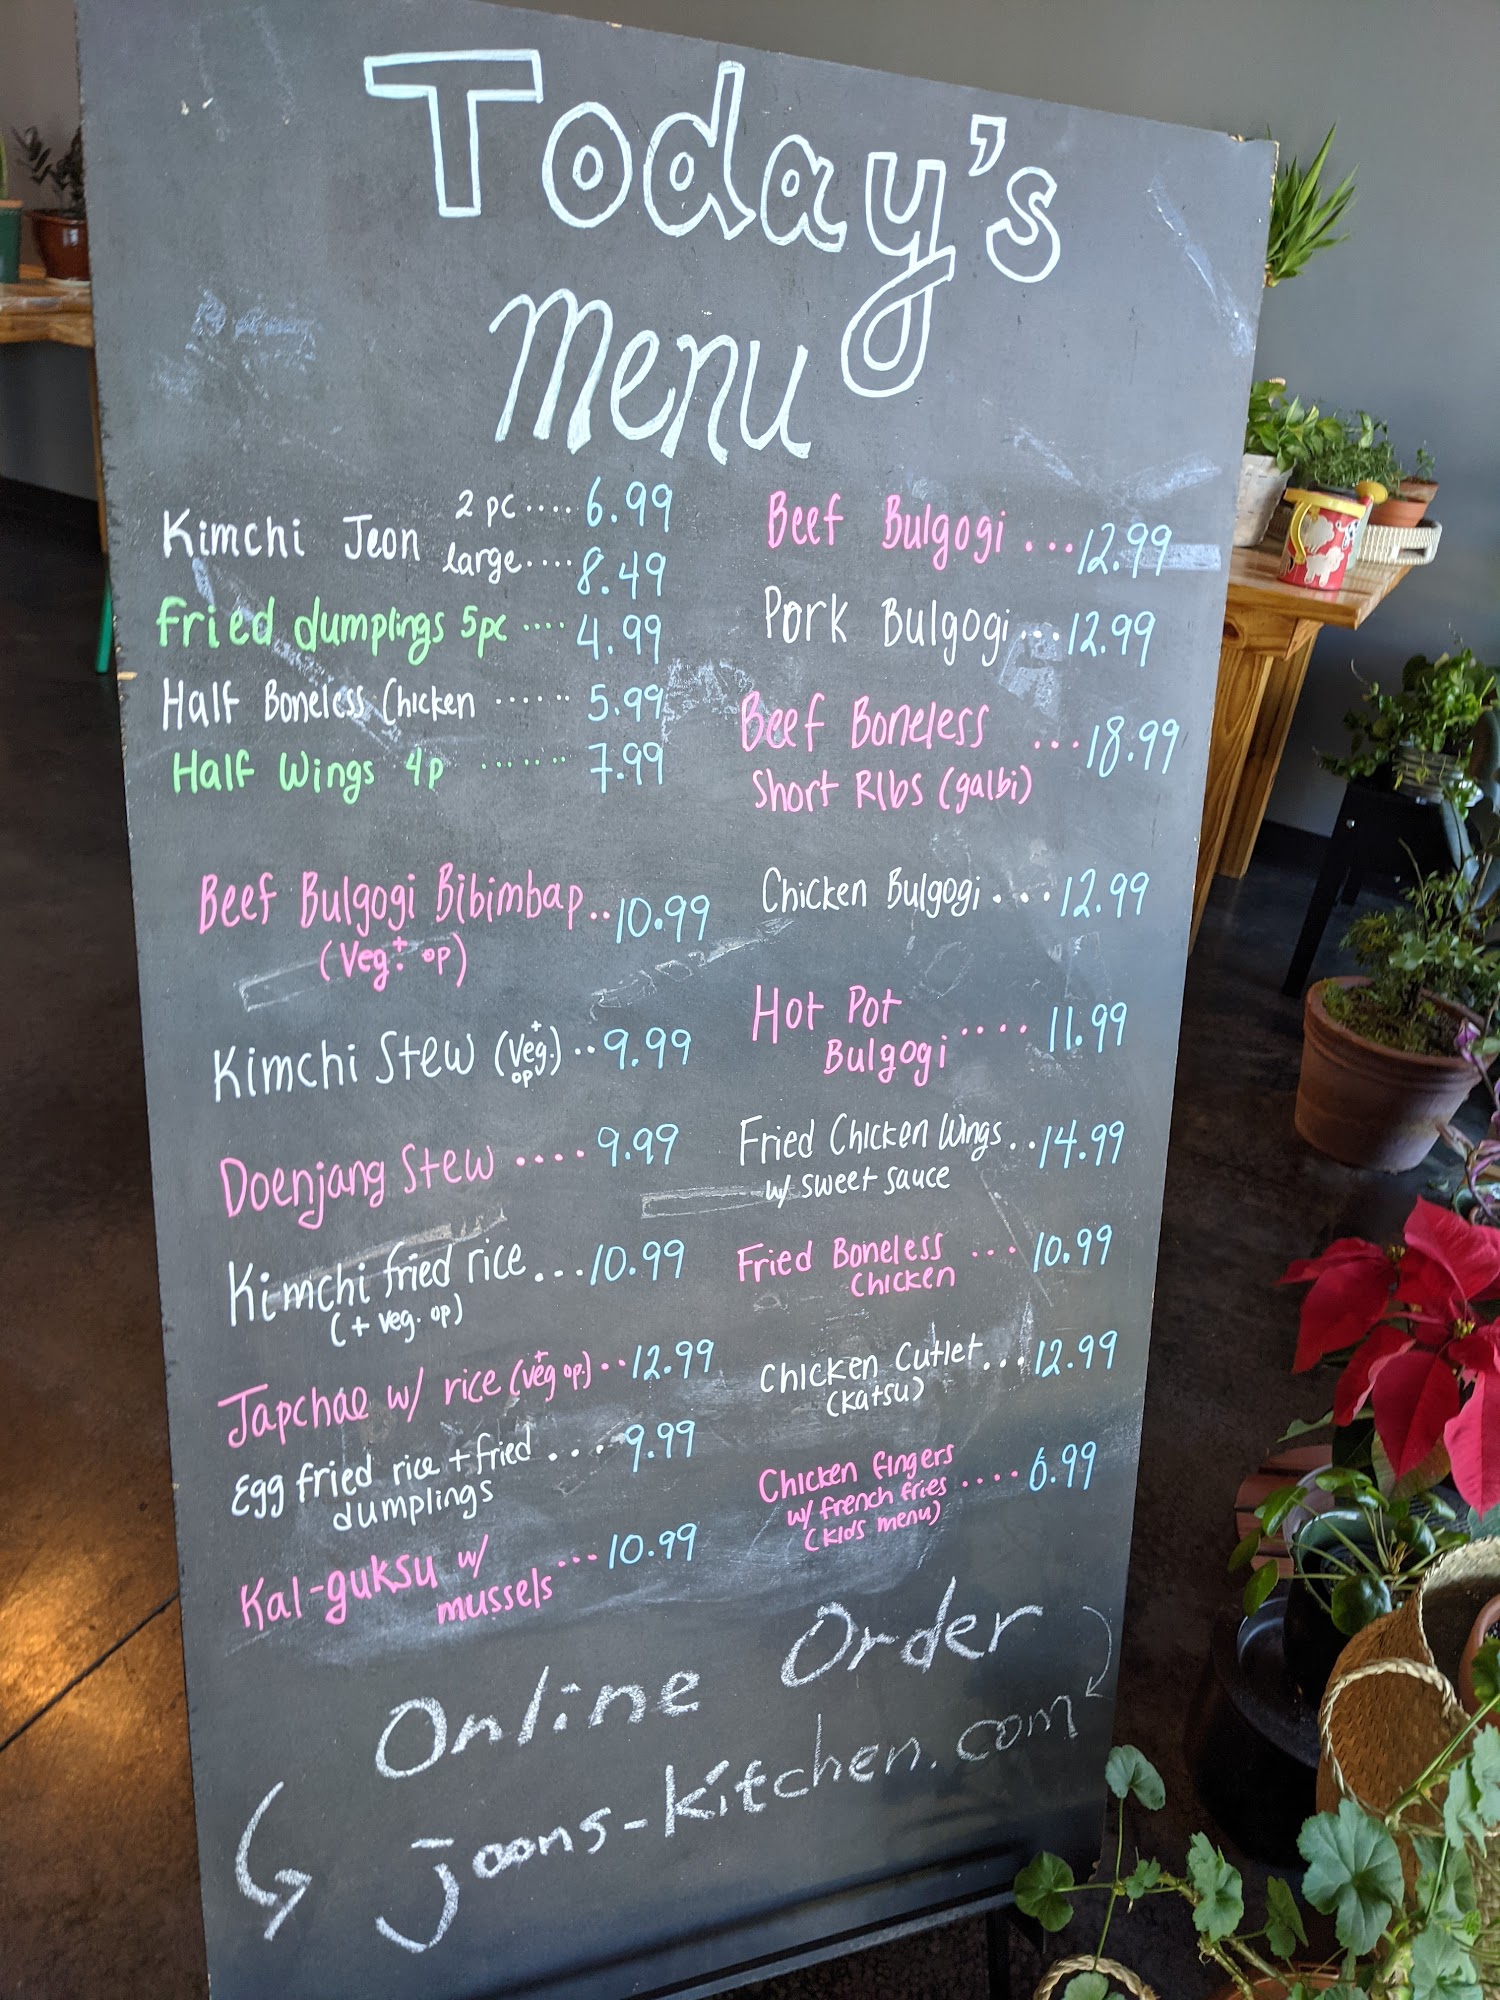 Today's
Menu
Kimchi Jeon 2 pc .... 6.99
large .... 8.49
Fried dumplings 5pc .... 4.99
Half Boneless Chicken ...... 5.99
Half Wings 4p ...... 7.99
Beef Bulgogi Bibimbap .. 10.99
(Veg.+ op)
Kimchi Stew (Veg.+ op) .. 9.99
Doenjang Stew .... 9.99
Kimchi fried rice ... 10.99
(+ veg. op)
Japchae w/ rice (veg+ op.) .. 12.99
Egg fried rice + fried .... 9.99
dumplings
Kal-guksu w/ ... 10.99
mussels
Beef Bulgogi ... 12.99
Pork Bulgogi ... 12.99
Beef Boneless ... 18.99
Short RIbs (galbi)
Chicken Bulgogi .... 12.99
Hot Pot .... 11.99
Bulgogi
Fried Chicken Wings .. 14.99
w/ sweet sauce
Fried Boneless ... 10.99
Chicken
Chicken Cutlet ... 12.99
(Katsu)
Chicken fingers
w/ french fries .... 6.99
(kids menu)
Online Order
joons-kitchen.com